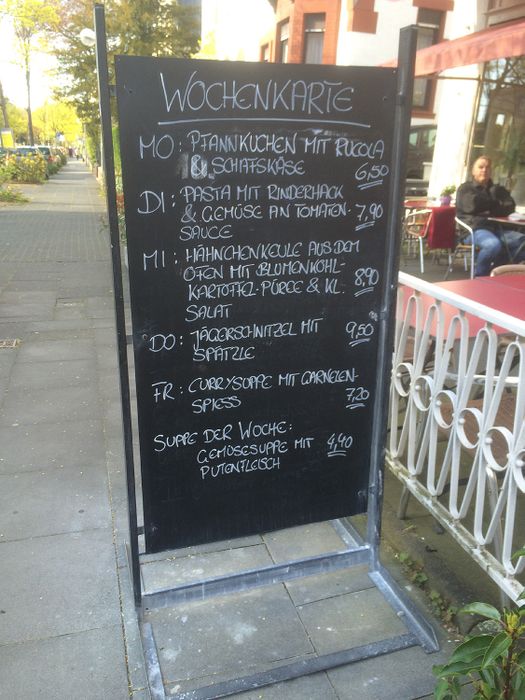 WOCHENKARTE
MO: PFANNKUCHEN MIT RUCOLA
& SCHAFSKÄSE 6,50
DI: PASTA MIT RINDERHACK
& GEMÜSE AN TOMATEN- 7,90
SAUCE
MI: HÄHNCHENKEULE AUS DEM
OFEN MIT BLUMENKOHL-
KARTOFFEL-PÜREE & KL. 8,90
SALAT
DO: JÄGERSCHNITZEL MIT 9,50
SPÄTZLE
FR: CURRYSUPPE MIT GARNELEN-
SPIESS 7,20
SUPPE DER WOCHE:
GEMÜSESUPPE MIT 4,40
PUTENFLEISCH